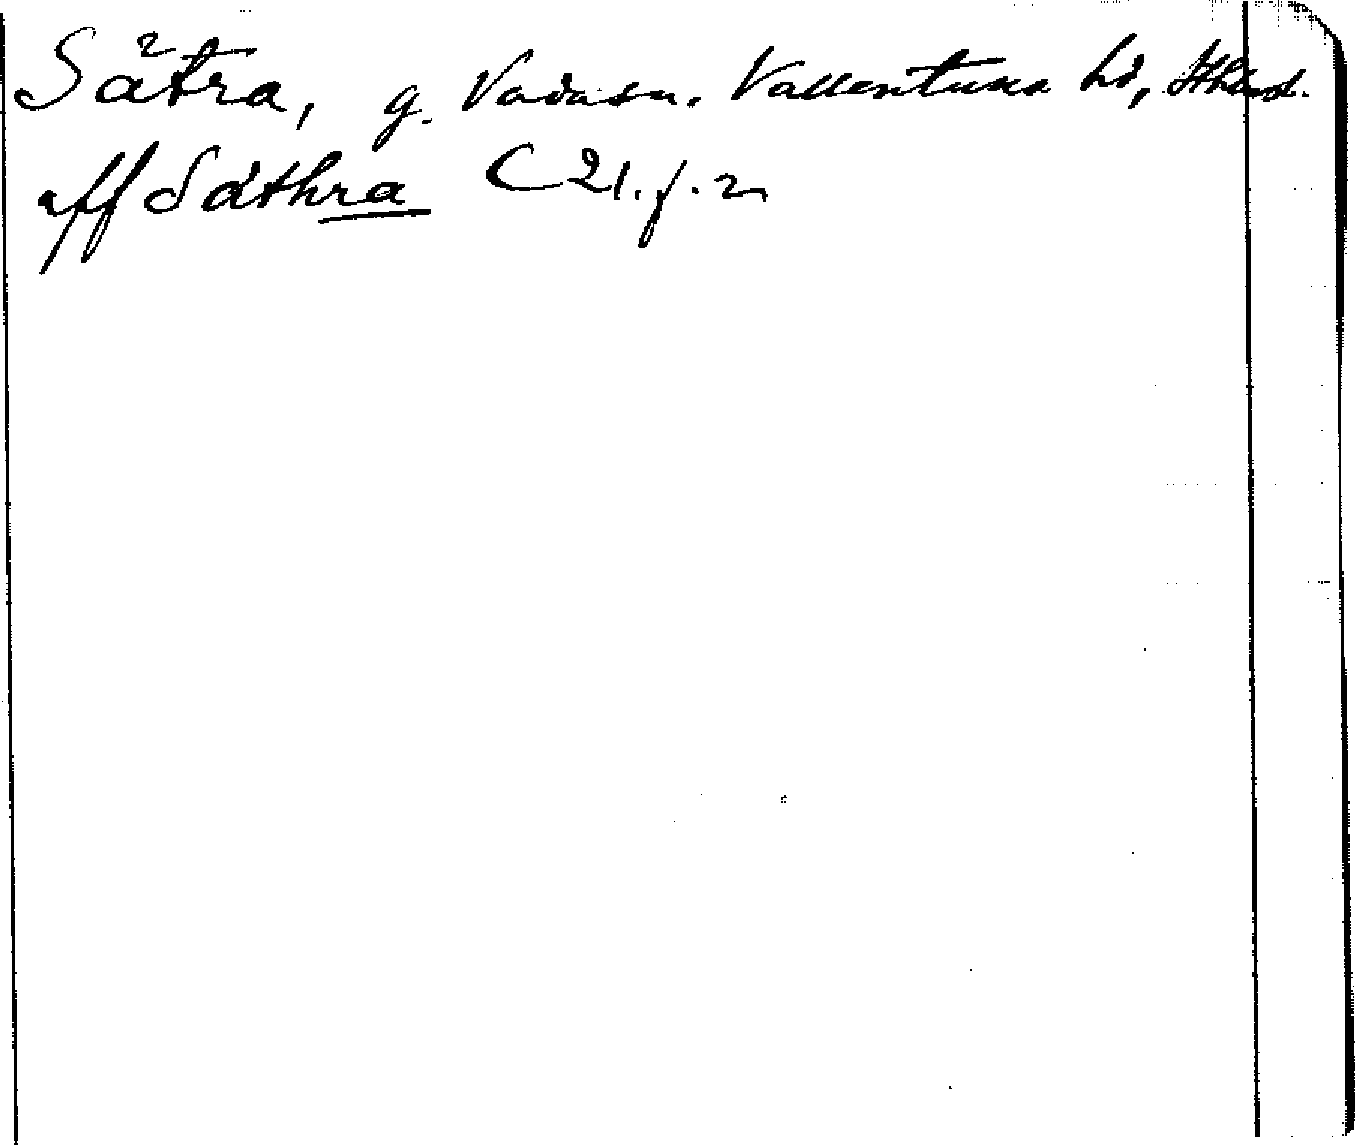 Sätra, g. Vada sn. Vallentuna hd, Sthlmsl.
aff Säthra C 21. f. 2